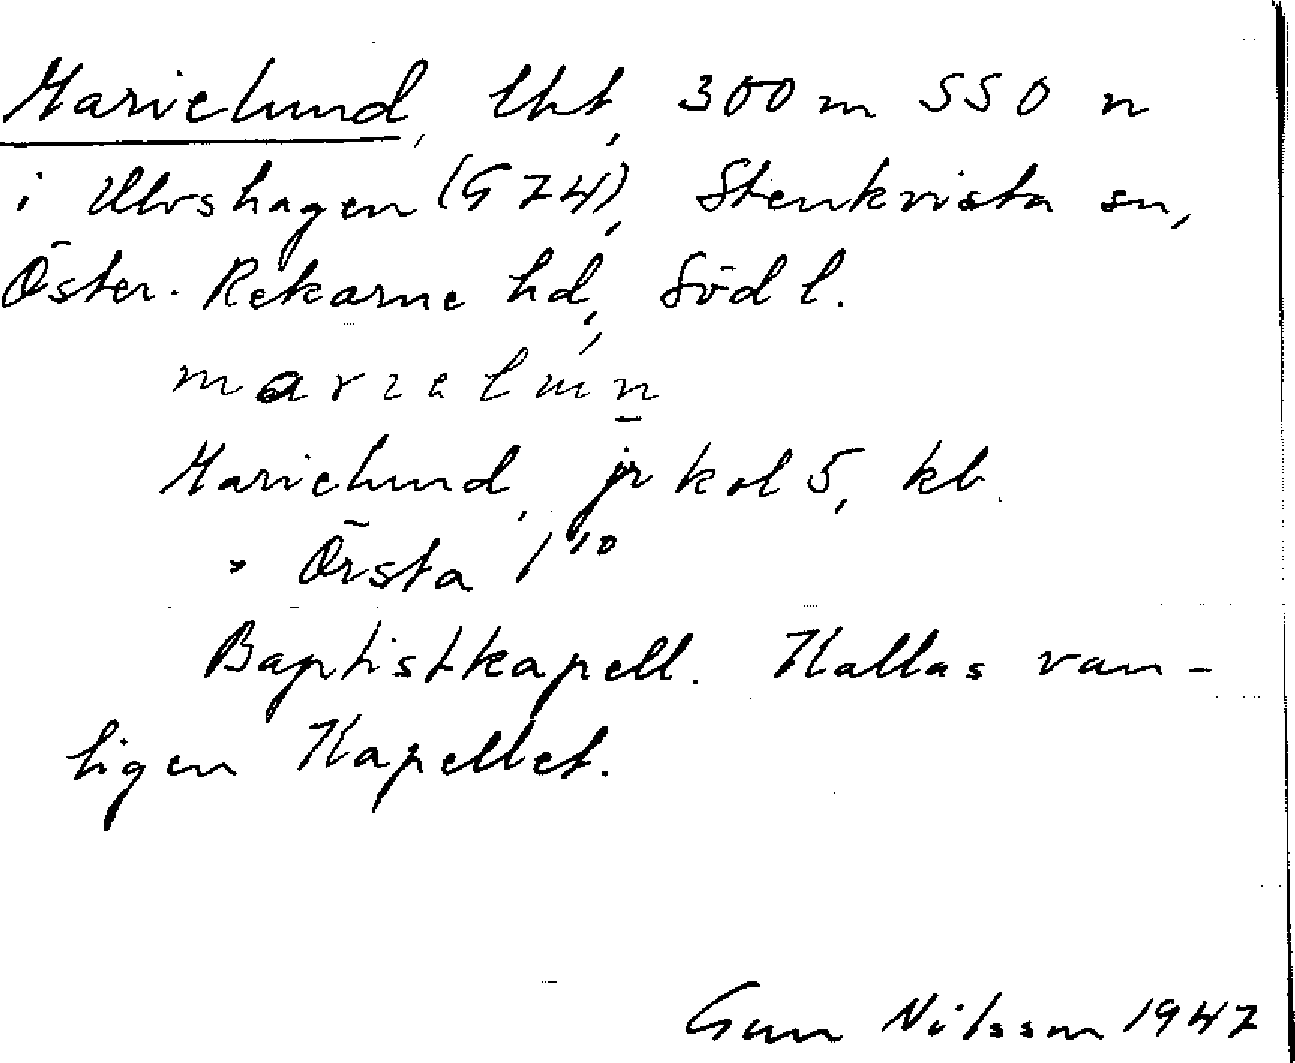 Marielund, lht, 300 m SSO n
i Ulvshagen (G 74), Stenkvista sn,
Öster-Rekarne hd, Södl.
Marielund, jr kol 5, kb.
" Örsta 1/10
Baptistkapell. Kallas van-
ligen Kapellet.
Gun Nilsson 1947